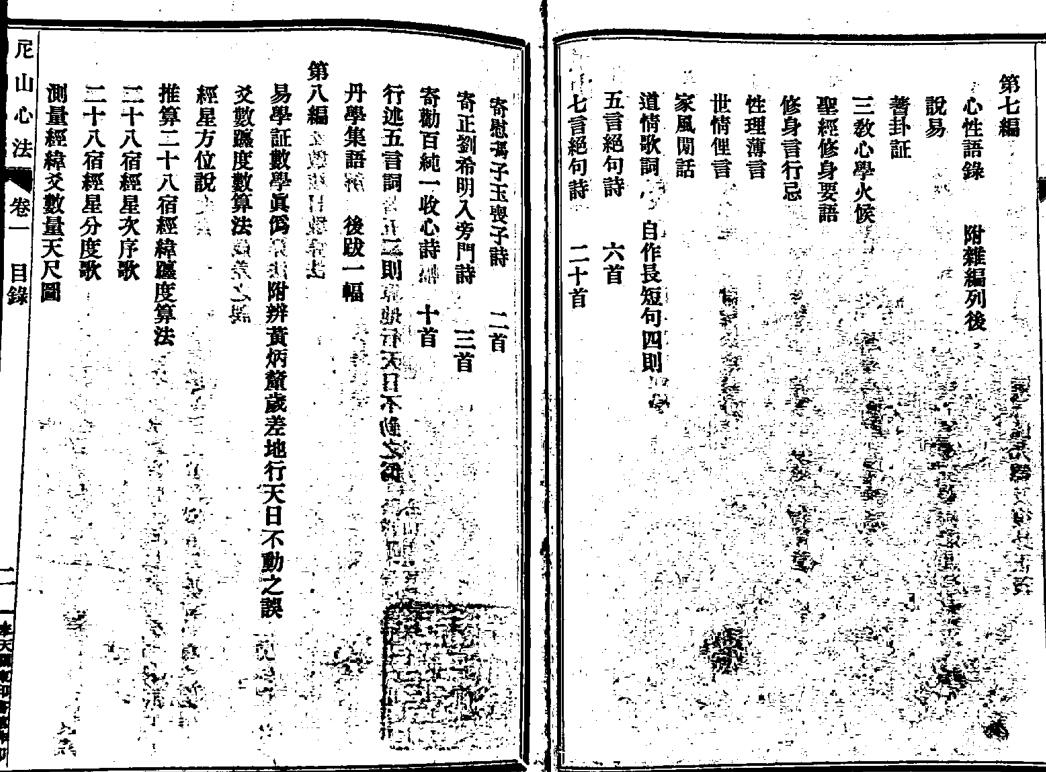 第七編
心性語錄 附雜編列後
說易
蓍卦証
三敎心學火候
聖經修身要語
修身言行忌
性理薄言
世情俚言
家風閒話
道情歌詞 自作長短句四則
五言絕句詩 六首
七言絕句詩 二十首
寄慰馮子玉喪子詩 二首
寄正劉希明入旁門詩 三首
寄勸百純一收心詩 十首
行述五言詞 二則
丹學集語 後跋一幅
第八編
易學証數學眞僞 附辨黃炳黧歲差地行天日不動之誤
爻數躔度數算法
經星方位說
推算二十八宿經緯躔度算法
二十八宿經星次序歌
二十八宿經星分度歌
測量經緯爻數量天尺圖
尼山心法 卷一 目錄
二